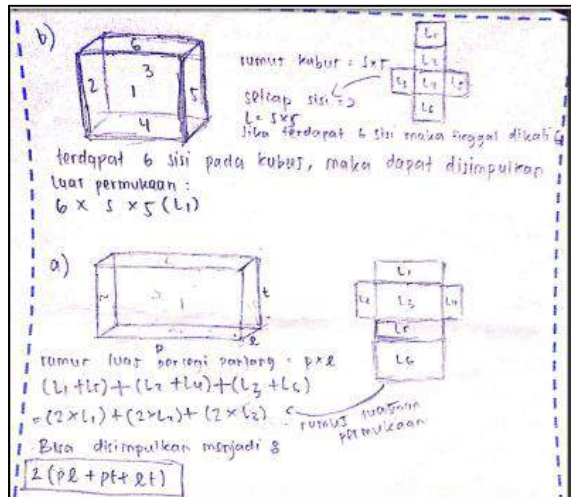 b)
6
3
2 1 5
4
rumus kubus = s x s
setiap sisi =>
L = s x s
Jika terdapat 6 sisi maka tinggal dikali 6
L1
L2
L3 L4 L5
L6
terdapat 6 sisi pada kubus, maka dapat disimpulkan
luas permukaan :
6 x s x s (L1)
a)
1
t
l
p
L1
L2 L3 L4
L5
L6
rumus luas persegi panjang = p x l
(L1 + L5) + (L2 + L4) + (L3 + L6)
= (2 x L1) + (2 x L2) + (2 x L3)
rumus
permukaan
Bisa disimpulkan menjadi :
2 (pl + pt + lt)